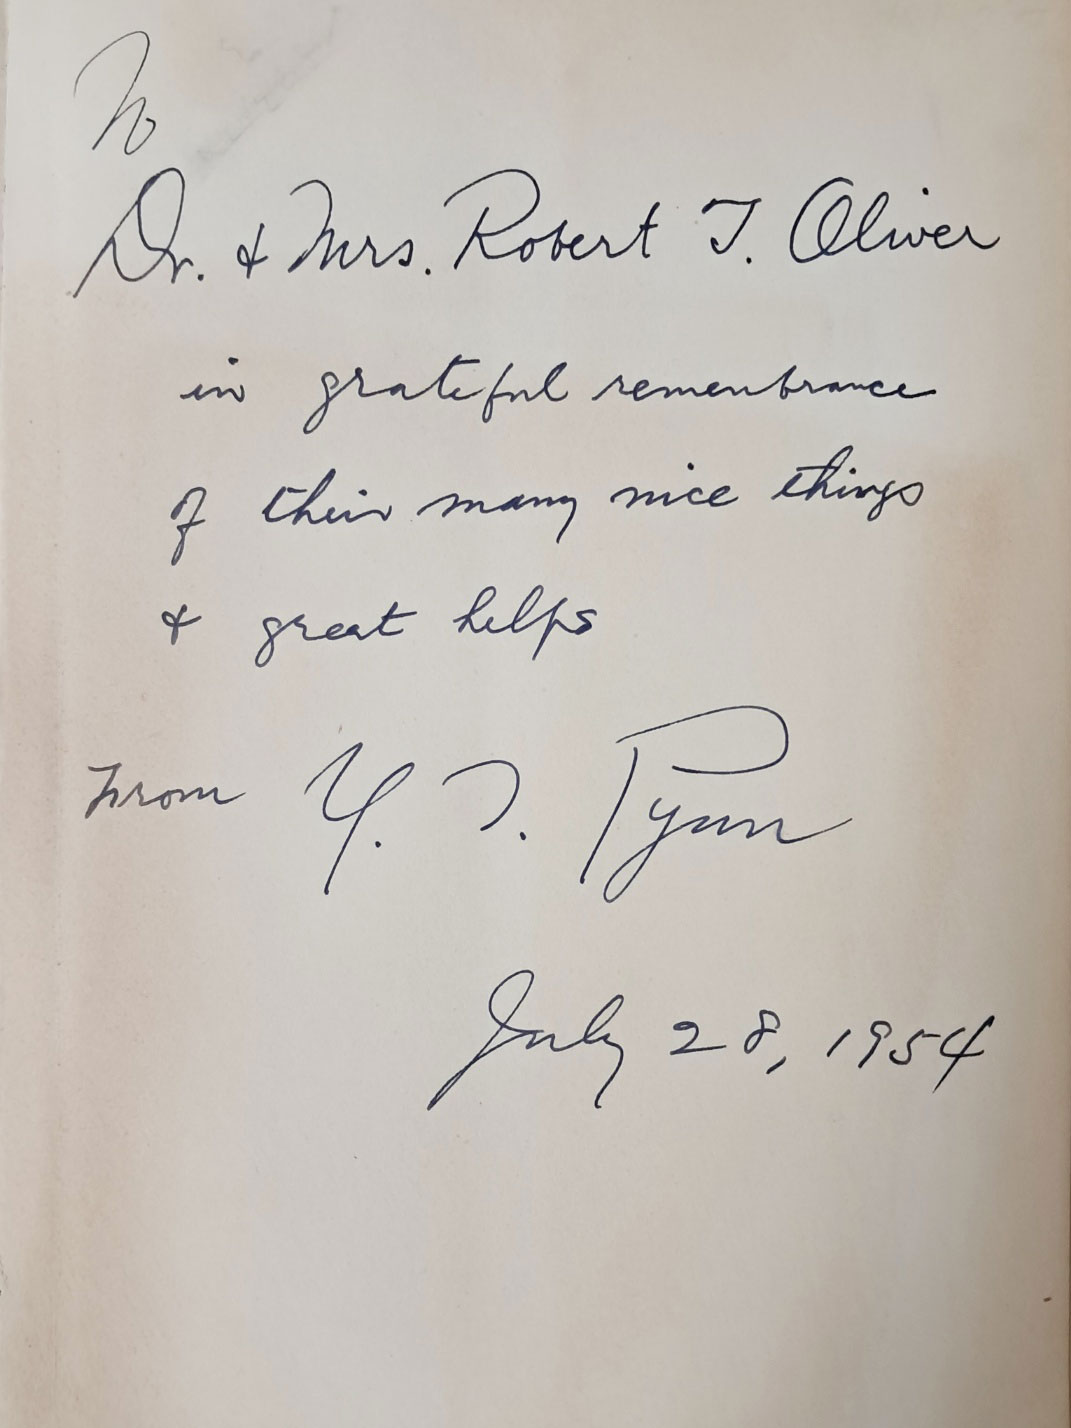 To
Dr. & Mrs. Robert T. Oliver
in grateful remembrance
of their many nice things
& great helps
From Y. T. Pyun
July 28, 1954